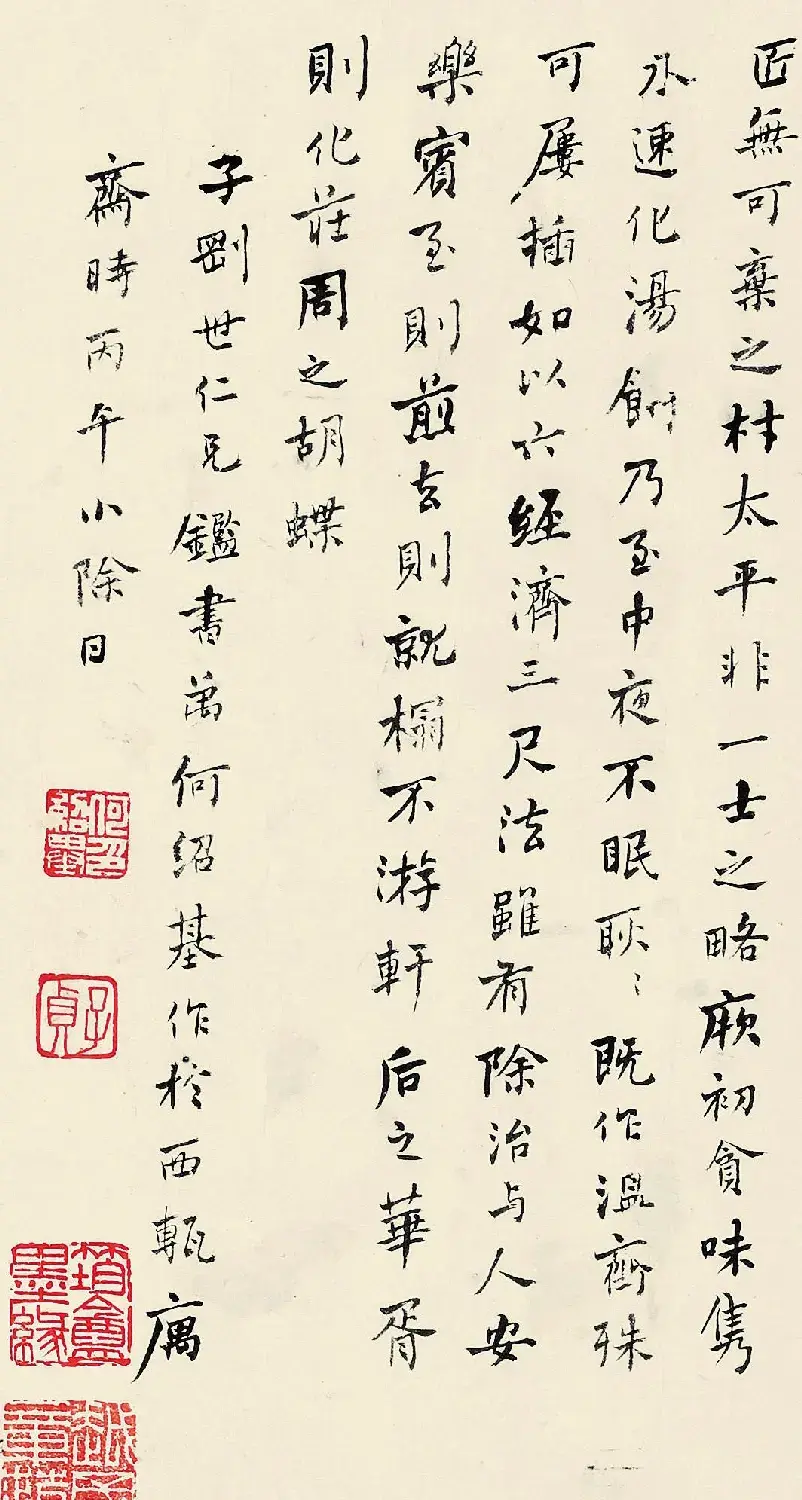 匠無可棄之材太平非一士之略厥初貪味雋
永速化湯餅乃至中夜不眠耿〻既作溫齊殊
可屢插如以六經濟三尺法雖有除治与人安
樂賓至則煎去則就榻不游軒后之華胥
則化莊周之胡蝶
子剛世仁兄鑑書弟何紹基作於西甎寓
齋時丙午小除日
何紹基印
子貞